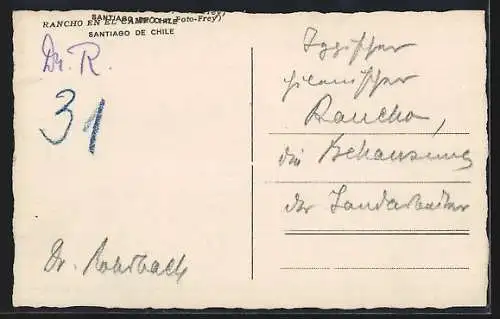 SANTIAGO DE CHILE
RANCHO EN EL CAMPO (Foto-Frey)
SANTIAGO DE CHILE
Dr. R.
31
Typischer
chilenischer
Rancho,
die Behausung
der Landarbeiter
Dr. Rohrbach